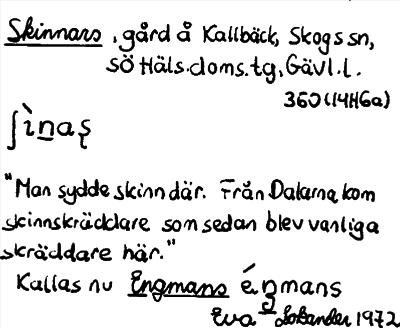 Skinnars, gård å Kallbäck, Skogs sn,
SÖ Häls. doms. tg, Gävl. l.
36O (14H6a)
ʃìnaʂ
"Man sydde skinn där. Från Dalarna kom
skinnskräddare som sedan blev vanliga
skräddare här."
Kallas nu Engmans éŋmans
Eva 1972